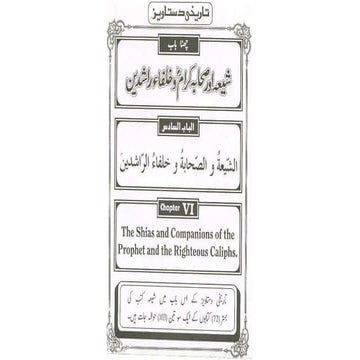 تاریخی دستاویز
چھٹا باب
شیعہ اور صحابہ کرامؓ و خلفاء راشدین
الباب السادس
الشّيعةُ و الصّحابةُ و خلفاءُ الرّاشدينَ
Chapter VI
The Shias and Companions of the
Prophet and the Righteous Caliphs.
تاریخی دستاویز کے اس باب میں شیعہ کتب کی
بہتر (72) کتابوں کے ایک سو تین (103) حوالہ جات ہیں۔